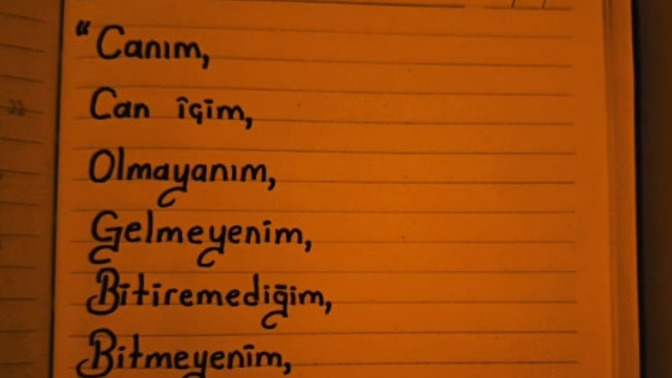 “Canım,
Can içim,
Olmayanım,
Gelmeyenim,
Bitiremediğim,
Bitmeyenim,